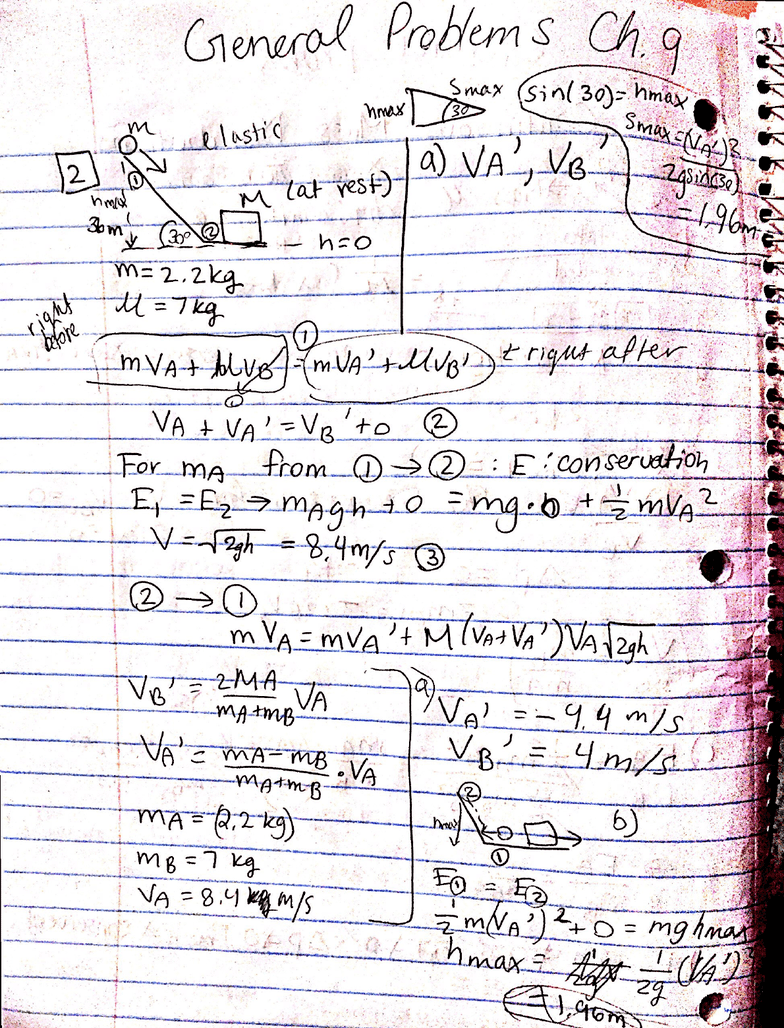 General Problems Ch. 9
hmax Smax 30
sin(30) = hmax
Smax = (VA')²
2gsin(30)
= 1,96m
2
m elastic
①
hmax
36m
30° ②
M (at rest)
h=0
m = 2.2kg
M = 7kg
a) VA', VB'
right before
①
mVA + MVB = mVA' + MVB' right after
VA + VA' = VB' + 0 ②
For mA from ① → ② : E : conservation
E1 = E2 → mAgh + 0 = mg·0 + 1/2 mVA²
V = √2gh = 8,4m/s ③
② → ①
mVA = mVA' + M(VA+VA') VA √2gh
VB' = 2MA/mA+mB VA
VA' = mA-mB/mA+mB · VA
mA = (2,2 kg)
mB = 7 kg
VA = 8.4 m/s
a) VA' = -4,4 m/s
VB' = 4 m/s
②
hmax
①
b)
E① = E②
1/2 m(VA')² + 0 = mghmax
hmax = 1/2g (VA')²
= 1,96m